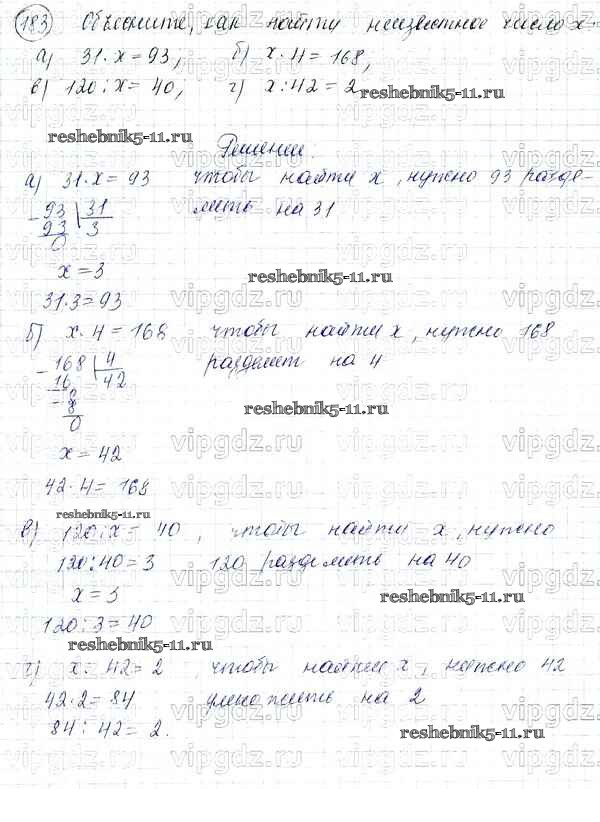 183 Объясните, как найти неизвестное число x.
а) 31·x=93, б) x·4=168,
в) 120:x=40, г) x:42=2
reshebnik5-11.ru
reshebnik5-11.ru
Решение:
а) 31·x=93 чтобы найти x, нужно 93 разде-
93 31 лить на 31
93 3
0
x=3
reshebnik5-11.ru
31·3=93
б) x·4=168 чтобы найти x, нужно 168
168 4 разделит на 4
16 42
8
8
0
reshebnik5-11.ru
x=42
42·4=168
reshebnik5-11.ru
в) 120:x=40, чтобы найти x, нужно
120:40=3 120 разделить на 40
x=3
reshebnik5-11.ru
120:3=40
reshebnik5-11.ru
г) x:42=2, чтобы найти x, нужно 42
42·2=84 умножить на 2
84:42=2.
reshebnik5-11.ru
vipgdz.ru